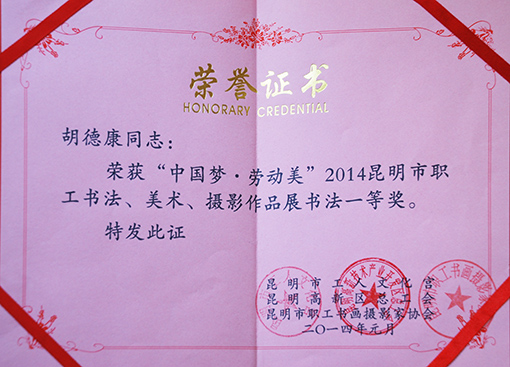 荣誉证书
HONORARY CREDENTIAL
胡德康同志：
荣获“中国梦·劳动美”2014昆明市职
工书法、美术、摄影作品展书法一等奖。
特发此证
昆明市工人文化宫
昆明高新区总工会
昆明市职工书画摄影家协会
二〇一四年元月